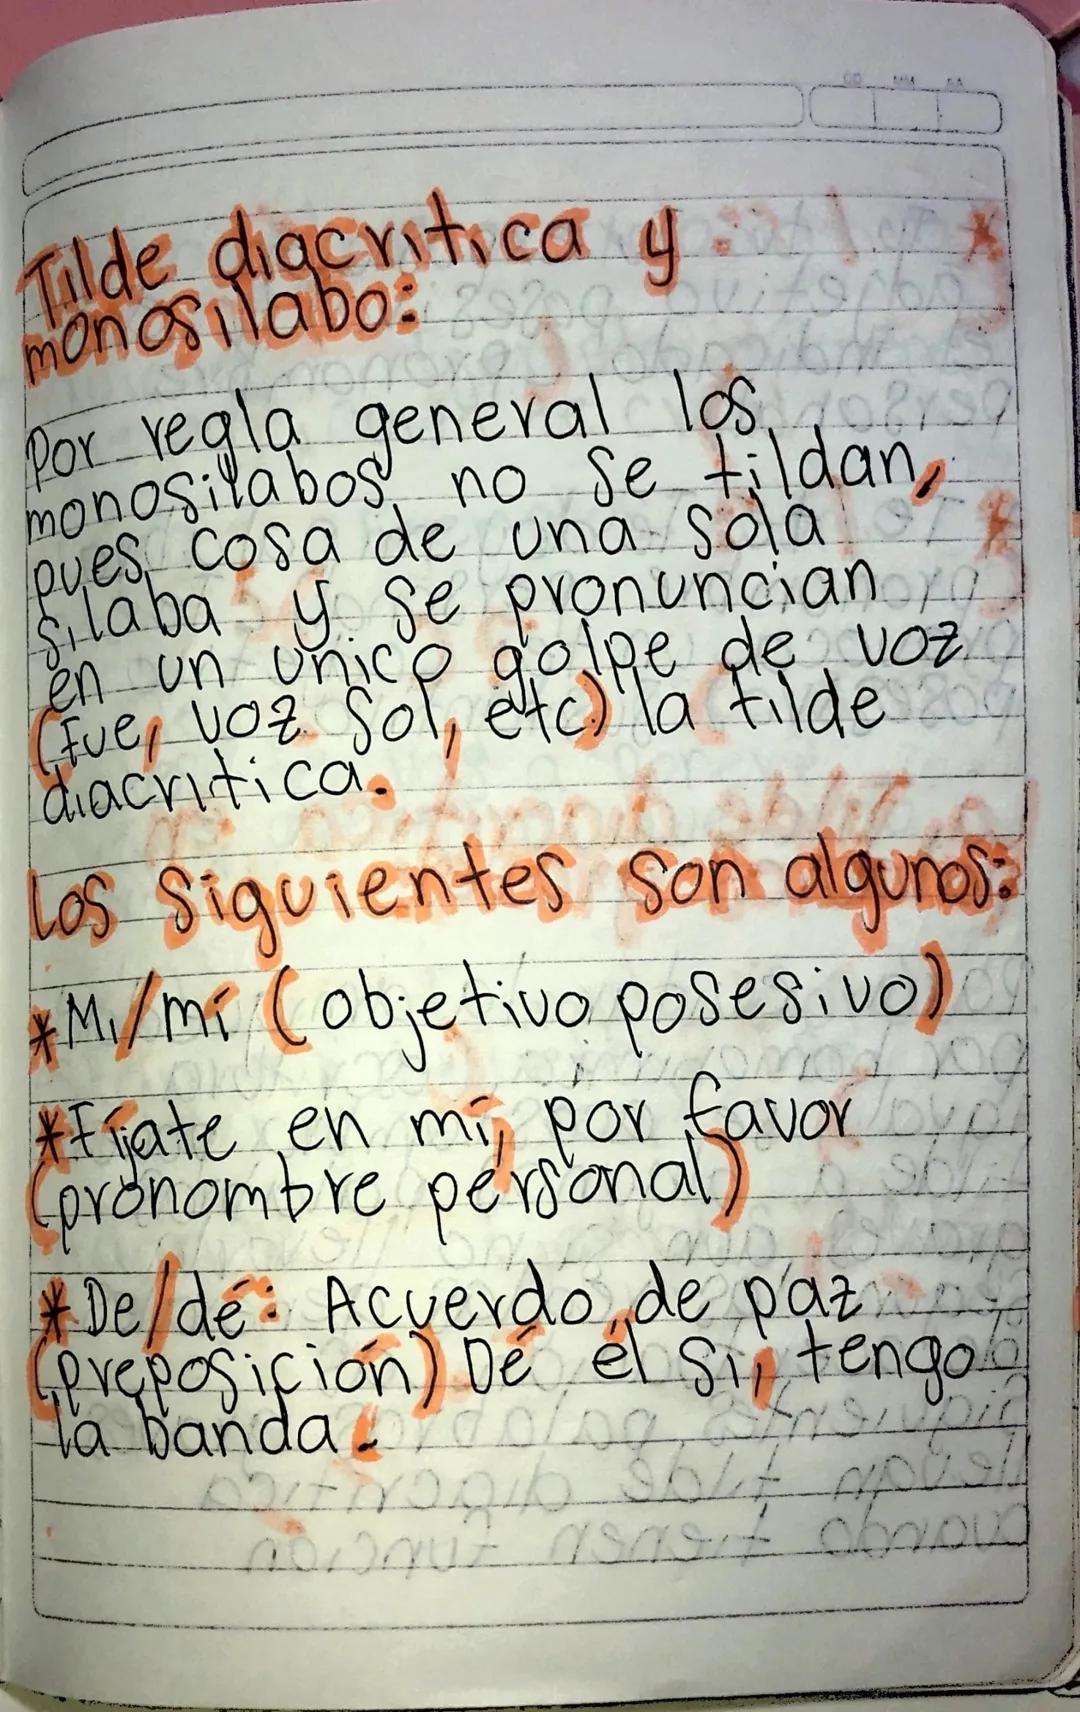 Tilde diacritica y
monosilabo:
Por regla general los
monosilabos no se tildan,
pues cosa de una sola
silaba y se pronuncian
en un unico golpe de voz
(Fue, voz sol, etc) la tilde
diacritica.
Los siguientes son algunos:
*Mi/mí (objetivo posesivo)
*Fijate en mí, por favor
(pronombre personal)
*De/dé: Acuerdo de paz
(preposición) Dé él si, tengo
la banda.